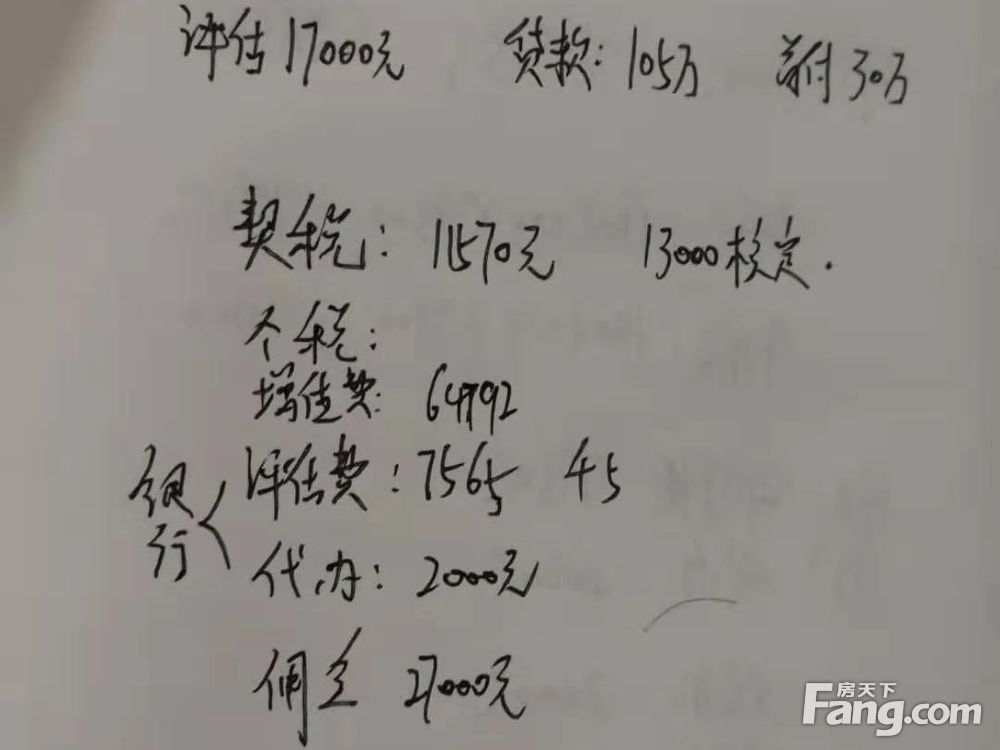 评估17000元 贷款:105万 首付30万
契税:11570元 13000核定.
个税:
增值费: 64792
银行
评估费:7565 45
代办:2000元
佣金 27000元
房天下
Fang.com